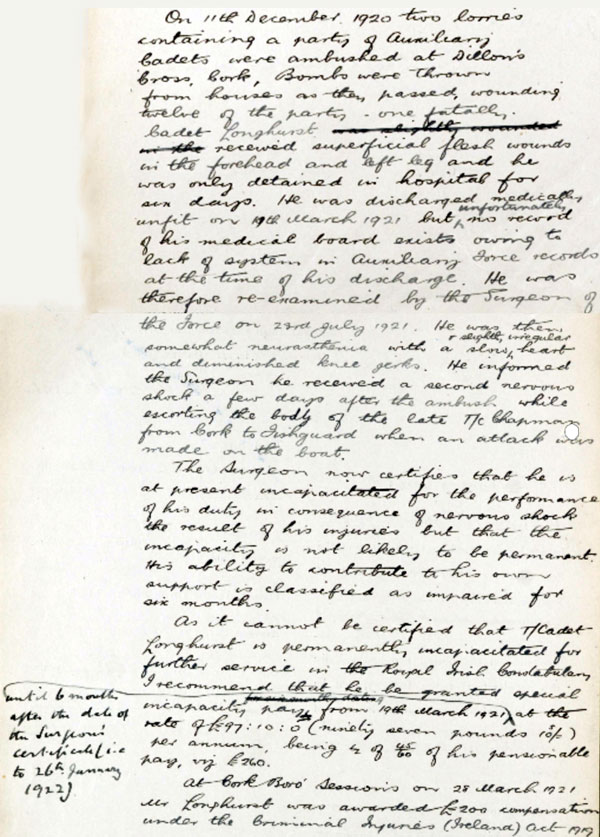 On 11th December. 1920 two lorries
containing a party of Auxiliary
Cadets were ambushed at Dillon's
Cross, Cork, Bombs were thrown
from houses as they passed, wounding
twelve of the party - one fatally.
Cadet Longhurst was slightly wounded
in the received superficial flesh wounds
in the forehead and left leg and he
was only detained in hospital for
six days. He was discharged medically
unfortunately
unfit on 19th March 1921 but no record
of his medical board exists owing to
lack of system in Auxiliary Force records
at the time of his discharge. He was
therefore re-examined by the Surgeon of
the Force on 23rd July 1921. He was then
& slightly irregular
somewhat neurasthenia with a slow, heart
and diminished knee jerks. He informed
the Surgeon he received a second nervous
shock a few days after the ambush while
escorting the body of the late T/c Chapman
from Cork to Fishguard when an attack was
made on the boat.
The Surgeon now certifies that he is
at present incapacitated for the performance
of his duty in consequence of nervous shock
the result of his injuries but that the
incapacity is not likely to be permanent.
His ability to contribute to his own
support is classified as impaired for
six months.
As it cannot be certified that T/Cadet
Longhurst is permanently incapacitated for
further service in the Royal Irish Constabulary
I recommend that he be granted special
incapacity pay from 19th March 1921 at the
rate of £97:10:0 (ninety seven pounds 10/-)
per annum, being ½ of 45/60 of his pensionable
pay, viz £260.
At Cork Boro' Sessions on 28 March 1921
Mr Longhurst was awarded £200 compensation
under the Criminal Injuries (Ireland) Act 1919
until 6 months
after the date of
the Surgeon's
certificate (i.e
to 26th January
1922)